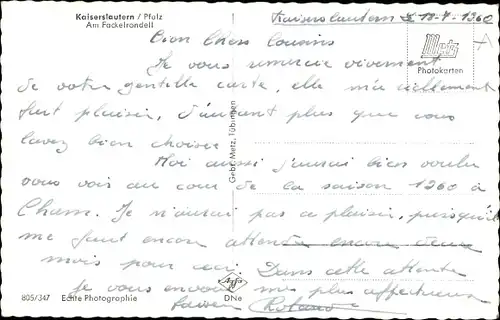 Kaiserslautern / Pfalz
Am Fackelrondell
Kaiserslautern 18-4-1960
Metz
Photokarten
Bien chers cousins
Je vous remercie vivement
de votre gentille carte, elle m'a réellement
fait plaisir, d'autant plus que vous
l'avez bien choisie.
Moi aussi j'aurai bien voulu
vous voir au cour de la saison 1960 à
Cham. Je n'aurai pas ce plaisir, puisqu'il
me faut encore attendre encore deux
mois pour ceci. Dans cette attente
je vous envoie mes plus affectueux
Roland
Gebr. Metz, Tübingen
Agfa
805/347 Echte Photographie DNe